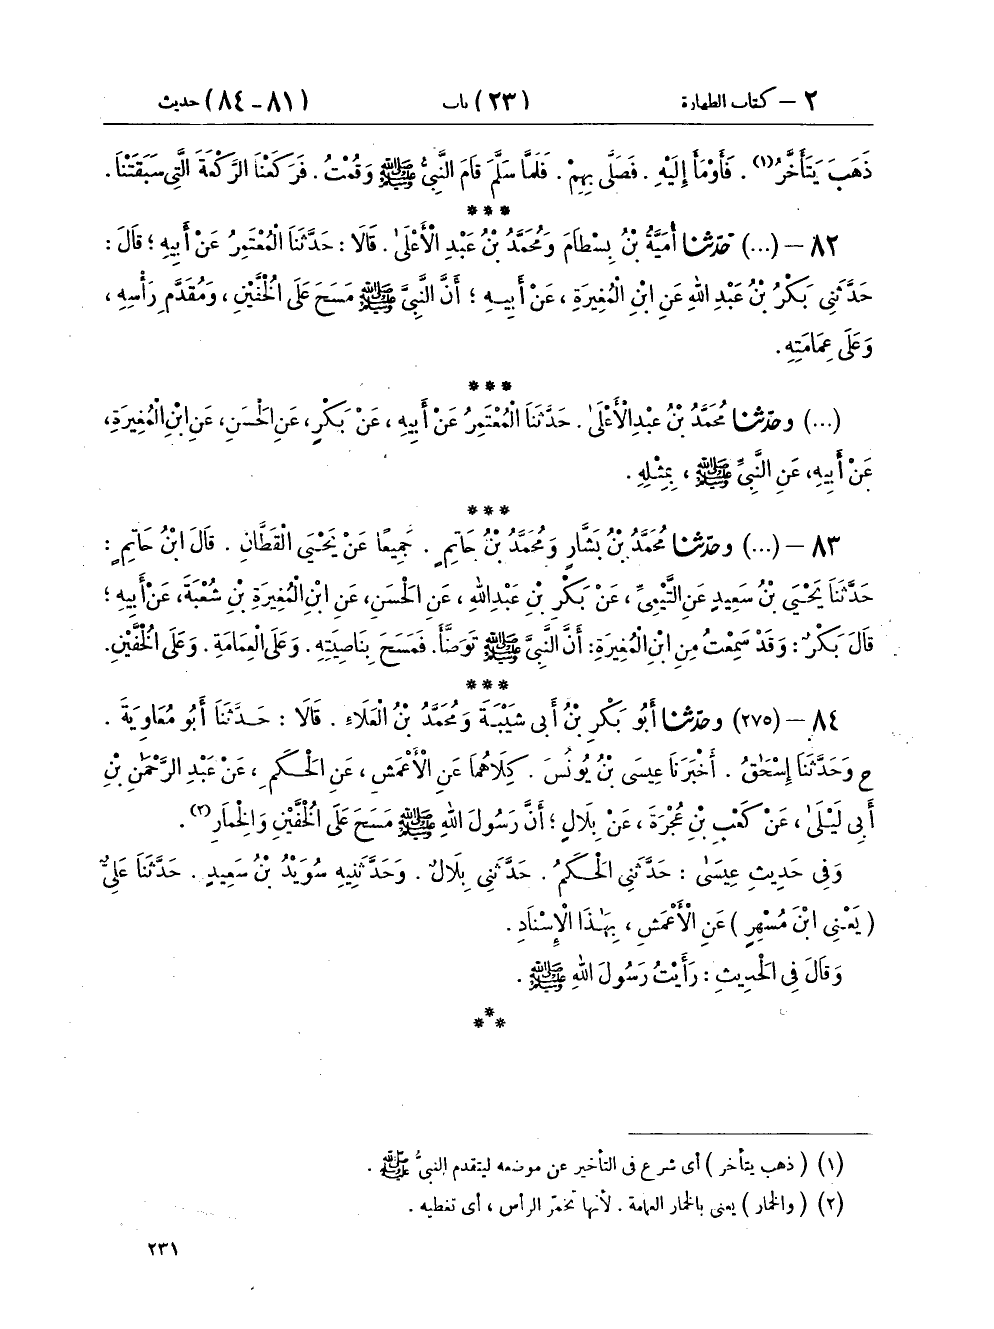 ٢ – كتاب الطهارة (٢٣) باب (٨١-٨٤) حديث
ذَهَبَ يَتَأَخَّرُ(١) . فَأَوْمَأَ إِلَيْهِ . فَصَلَّى بِهِمْ . فَلَمَّا سَلَّمَ قَامَ النَّبِيُّ ﷺ وَقُمْتُ . فَرَكَعْنَا الرَّكْعَةَ الَّتِى سَبَقَتْنَا .
***
٨٢ – (...) حَدَّثَنَا أُمَيَّةُ بْنُ بِسْطَامَ وَمُحَمَّدُ بْنُ عَبْدِ الْأَعْلَىٰ . قَالَا : حَدَّثَنَا الْمُعْتَمِرُ عَنْ أَبِيهِ ؛ قَالَ :
حَدَّثَنِى بَكْرُ بْنُ عَبْدِ اللهِ عَنِ ابْنِ الْمُغِيرَةِ ، عَنْ أَبِيهِ ؛ أَنَّ النَّبِيَّ ﷺ مَسَحَ عَلَى الْخُفَّيْنِ ، وَمُقَدَّمِ رَأْسِهِ ،
وَعَلَى عِمَامَتِهِ .
***
(...) وحَدَّثَنَا مُحَمَّدُ بْنُ عَبْدِ الْأَعْلَىٰ . حَدَّثَنَا الْمُعْتَمِرُ عَنْ أَبِيهِ ، عَنْ بَكْرٍ، عَنِ الْحَسَنِ، عَنِ ابْنِ الْمُغِيرَةِ،
عَنْ أَبِيهِ، عَنِ النَّبِيِّ ﷺ ، بِمِثْلِهِ .
***
٨٣ – (...) وحَدَّثَنَا مُحَمَّدُ بْنُ بَشَّارٍ وَمُحَمَّدُ بْنُ حَاتِمٍ . جَمِيعًا عَنْ يَحْيَى الْقَطَّانِ . قَالَ ابْنُ حَاتِمٍ :
حَدَّثَنَا يَحْيَى بْنُ سَعِيدٍ عَنِ التَّيْمِيِّ ، عَنْ بَكْرِ بْنِ عَبْدِ اللهِ ، عَنِ الْحَسَنِ، عَنِ ابْنِ الْمُغِيرَةِ بْنِ شُعْبَةَ، عَنْ أَبِيهِ ؛
قَالَ بَكْرٌ : وَقَدْ سَمِعْتُ مِنِ ابْنِ الْمُغِيرَةِ: أَنَّ النَّبِيَّ ﷺ تَوَضَّأَ. فَمَسَحَ بِنَاصِيَتِهِ . وَعَلَى الْعِمَامَةِ . وَعَلَى الْخُفَّيْنِ.
***
٨٤ – (٢٧٥) وحَدَّثَنَا أَبُو بَكْرِ بْنُ أَبِى شَيْبَةَ وَمُحَمَّدُ بْنُ الْعَلَاءِ . قَالَا : حَدَّثَنَا أَبُو مُعَاوِيَةَ .
ح وَحَدَّثَنَا إِسْحَاقُ . أَخْبَرَنَا عِيسَى بْنُ يُونُسَ . كِلَاهُمَا عَنِ الْأَعْمَشِ ، عَنِ الْحَكَمِ ، عَنْ عَبْدِ الرَّحْمَٰنِ بْنِ
أَبِى لَيْلَىٰ ، عَنْ كَعْبِ بْنِ عُجْرَةَ ، عَنْ بِلَالٍ ؛ أَنَّ رَسُولَ اللهِ ﷺ مَسَحَ عَلَى الْخُفَّيْنِ وَالْخِمَارِ(٢) .
وَفِى حَدِيثِ عِيسَىٰ : حَدَّثَنِى الْحَكَمُ . حَدَّثَنِى بِلَالٌ . وَحَدَّثَنِيهِ سُوَيْدُ بْنُ سَعِيدٍ . حَدَّثَنَا عَلِيٌّ
( يَعْنِى ابْنَ مُسْهِرٍ ) عَنِ الْأَعْمَشِ ، بِهَٰذَا الْإِسْنَادِ .
وَقَالَ فِى الْحَدِيثِ : رَأَيْتُ رَسُولَ اللهِ ﷺ .
***
(١) ( ذهب يتأخر ) أى شرع فى التأخير عن موضعه ليتقدم النبيُّ ﷺ .
(٢) ( والخمار ) يعنى بالخمار العمامة . لأنها تخمّر الرأس ، أى تغطيه .
٢٣١